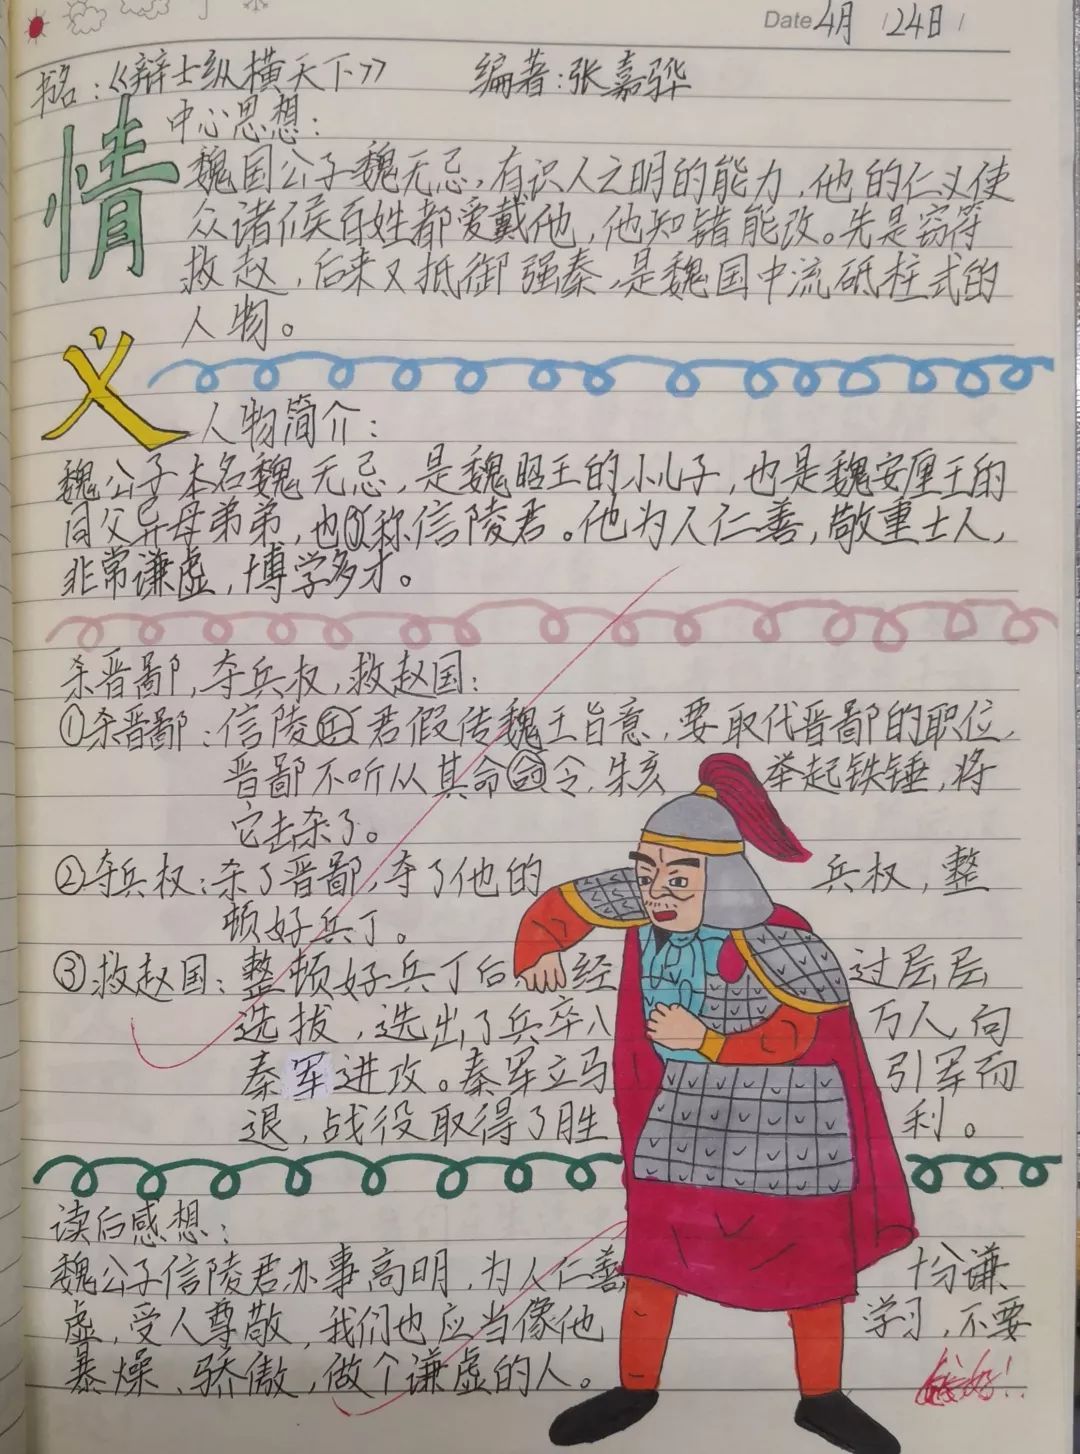 Date 4月 24日
书名：《辩士纵横天下》 编著：张嘉骅
情
中心思想：
魏国公子魏无忌，有识人之明的能力，他的仁义使
众诸侯百姓都爱戴他，他知错能改。先是窃符
救赵，后来又抵御强秦，是魏国中流砥柱式的
人物。
义
人物简介：
魏公子本名魏无忌，是魏昭王的小儿子，也是魏安厘王的
同父异母弟弟，也称信陵君。他为人仁善，敬重士人，
非常谦虚，博学多才。
杀晋鄙，夺兵权，救赵国：
①杀晋鄙：信陵君假传魏王旨意，要取代晋鄙的职位，
晋鄙不听从其命令，朱亥举起铁锤，将
它击杀了。
②夺兵权：杀了晋鄙，夺了他的兵权，整
顿好兵丁。
③救赵国：整顿好兵丁后，经过层层
选拔，选出了兵卒八万人，向
秦军进攻。秦军立马引军而
退，战役取得了胜利。
读后感想：
魏公子信陵君办事高明，为人仁善，十分谦
虚，受人尊敬，我们也应当像他学习，不要
暴燥、骄傲，做个谦虚的人。